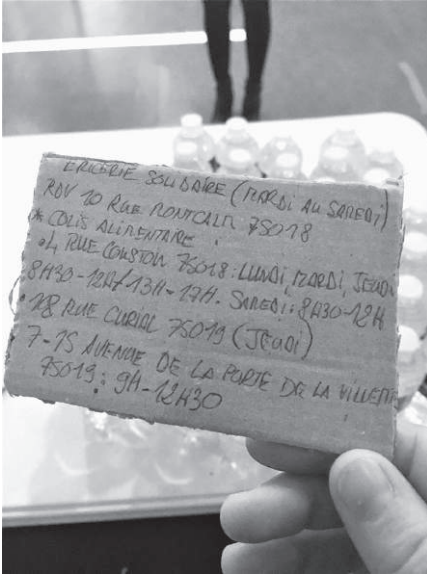 EPICERIE SOLIDAIRE (MARDI AU SAMEDI)
RDV 10 RUE MONTCALM 75018
* COLIS ALIMENTAIRE :
• 4 RUE COUSTOU 75018 : LUNDI, MARDI, JEUDI
8H30-12H/13H-17H. SAMEDI : 8H30-12H
RUE CURIAL 75019 (JEUDI)
7-15 AVENUE DE LA PORTE DE LA VILLETTE
75019 : 9H-12H30